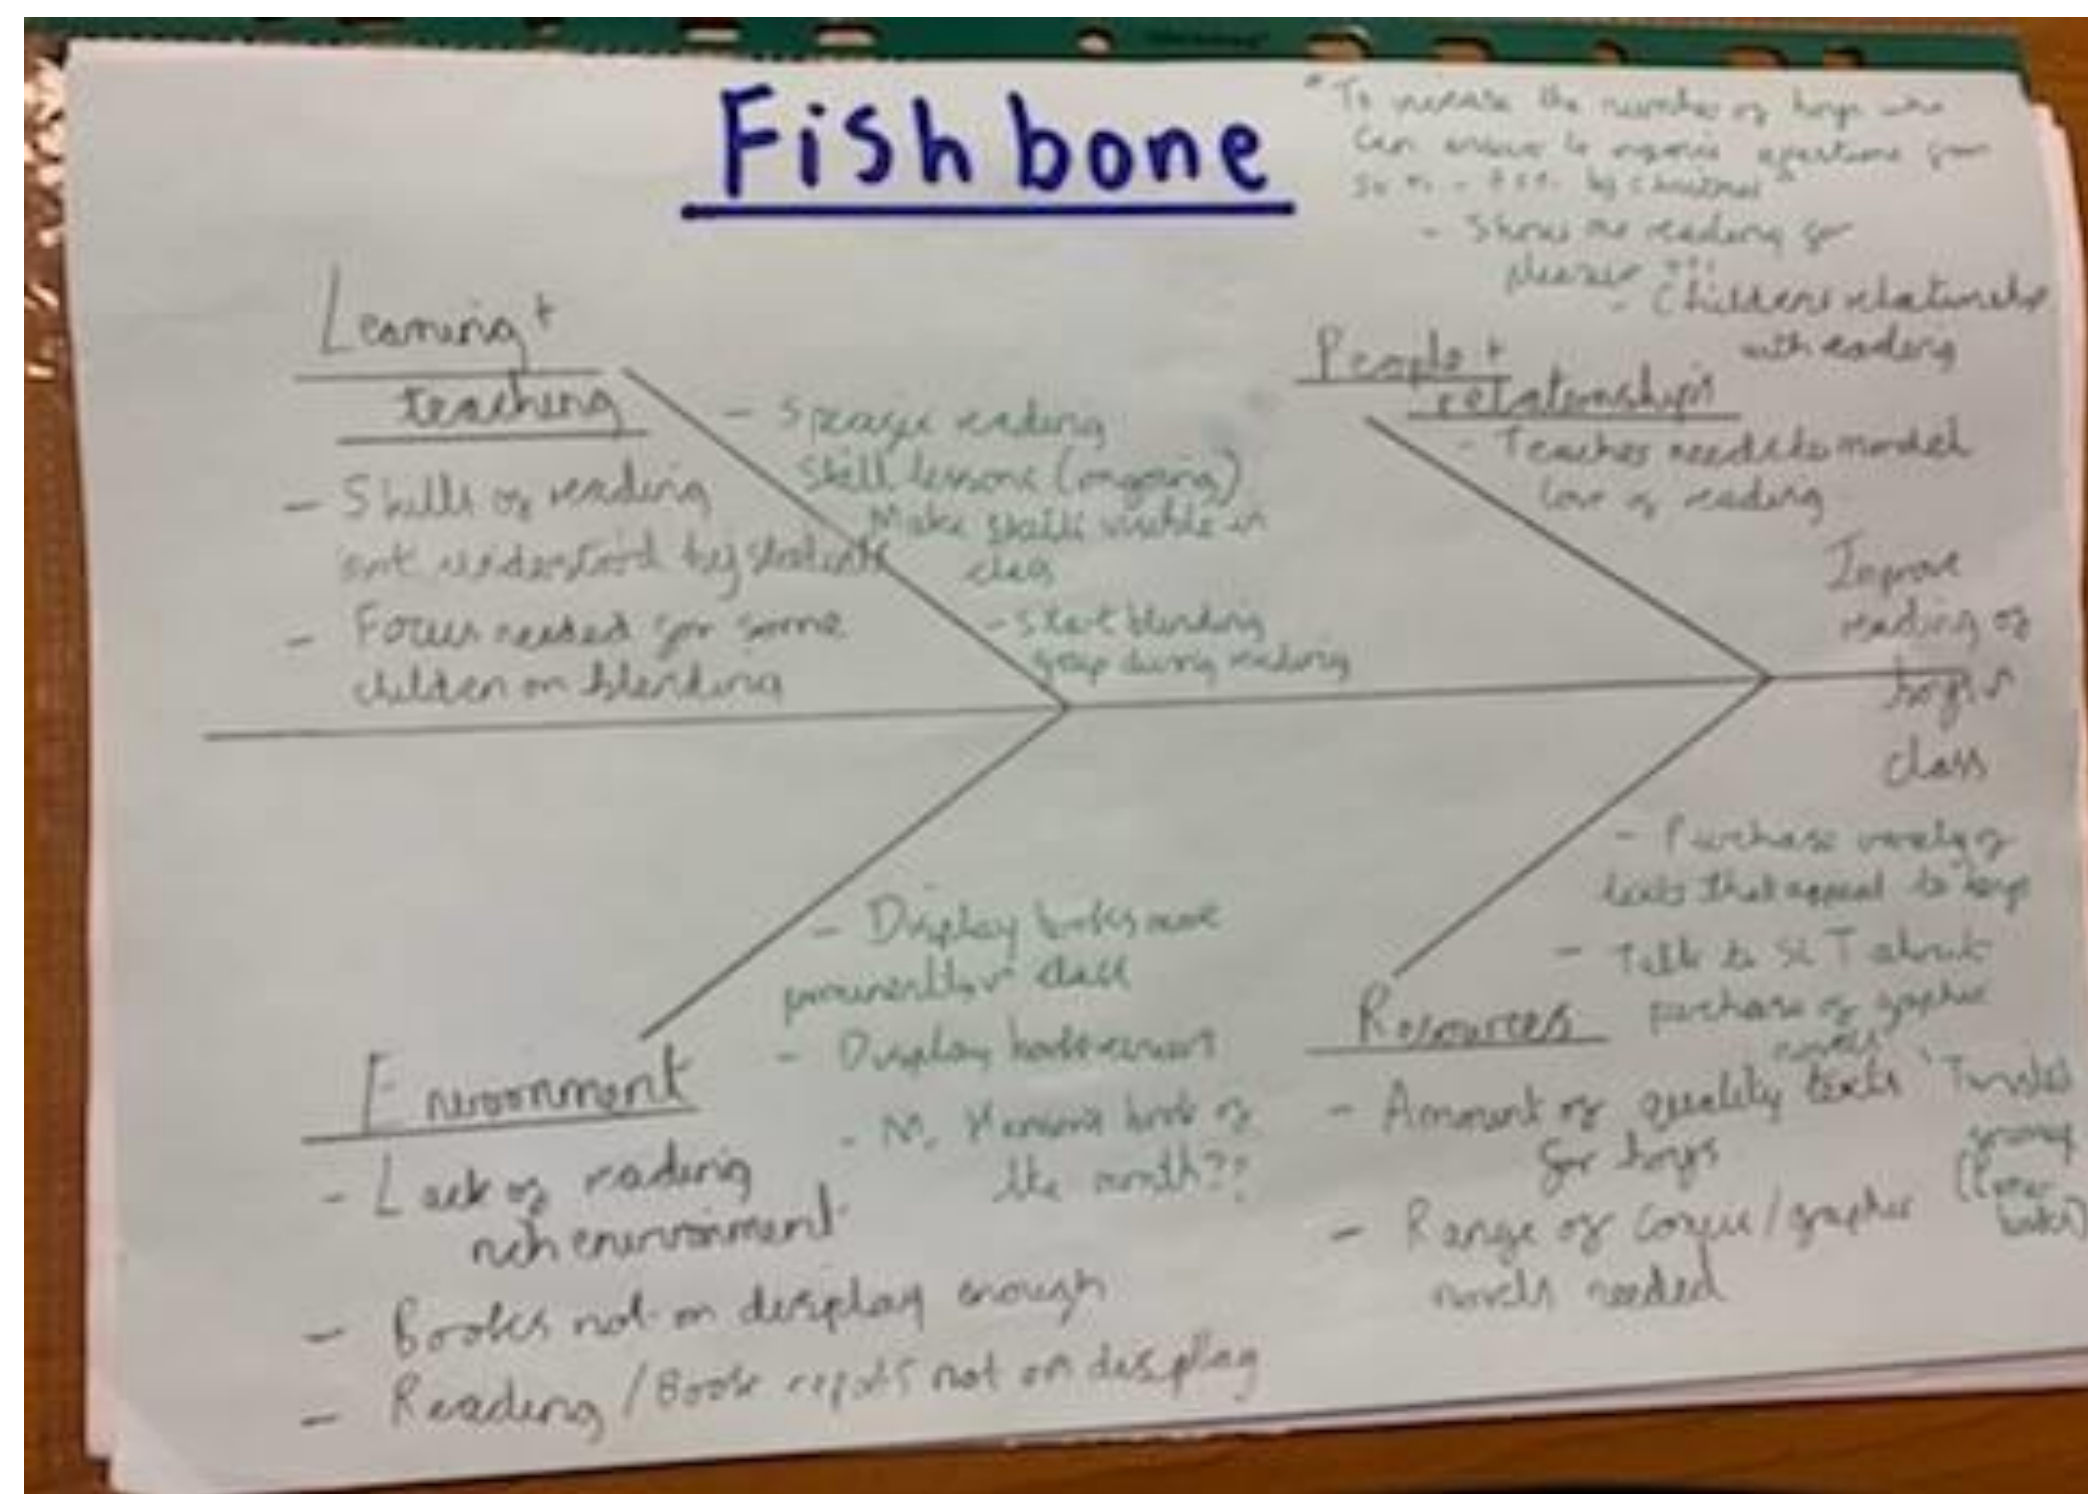 Fishbone
"To increase the number of boys who
can answer to inference questions from
by Christmas"
- Show me reading for
pleasure ???
- Childrens relationship
with reading
Learning +
teaching
- Skills of reading
not understood by students
- Focus needed for some
children on blending
- Specific reading
skill lessons (ongoing)
Make skills visible in
class
- Start blending
group during reading
People +
relationships
- Teacher needs to model
love of reading
Improve
reading of
boys in
class
Environment
- Lack of reading
rich environment
- Books not on display enough
- Reading / Book reports not on display
- Display books more
prominently in class
- Display book
- M. book of
the month??
Resources
- Amount of quality texts
for boys
- Range of comic / graphic
novels needed
- Purchase variety of
texts that appeal to boys
- Talk to SLT about
purchase of graphic
novels